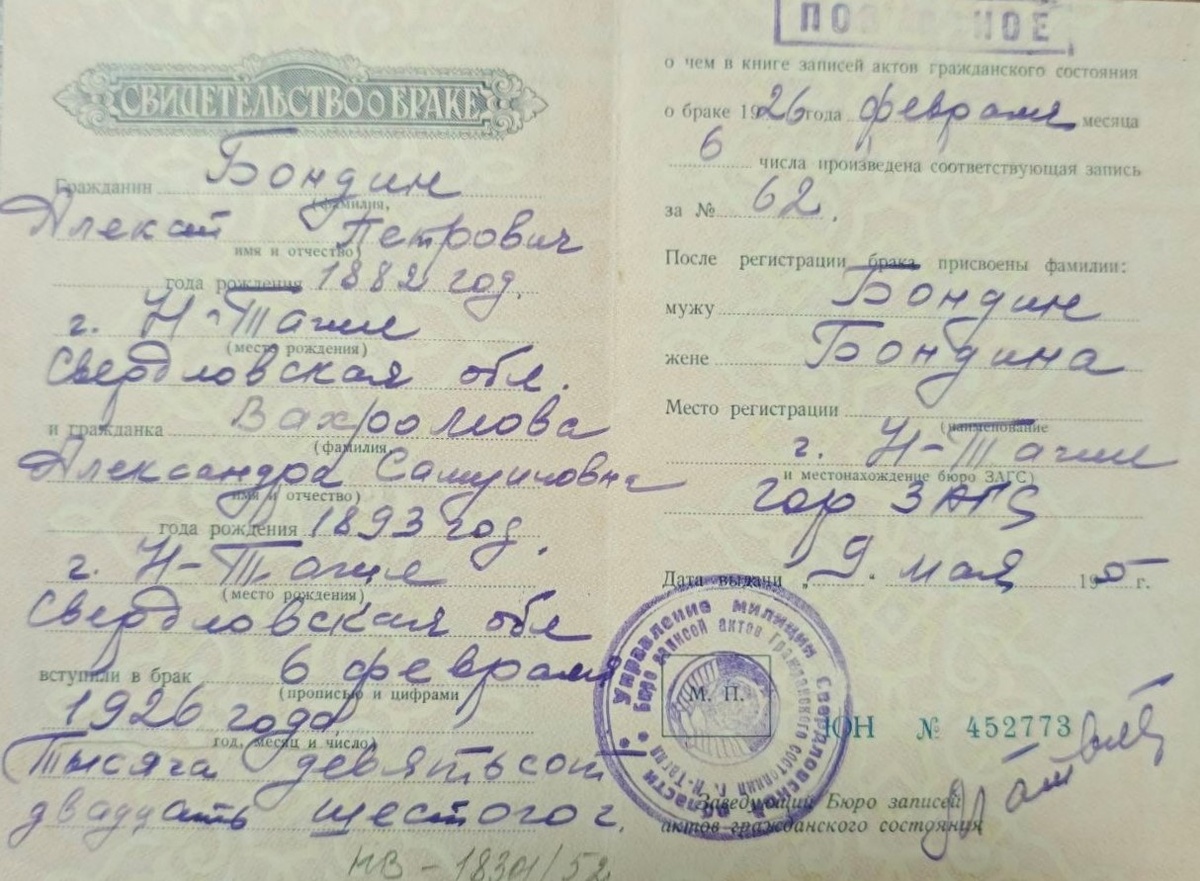 СВИДЕТЕЛЬСТВО О БРАКЕ
Гражданин Бондин
(фамилия,
Алексей Петрович
имя и отчество)
года рождения 1882 год.
г. Н-Тагил
(место рождения)
Свердловская обл.
и гражданка Вахромова
(фамилия,
Александра Самуиловна
имя и отчество)
года рождения 1893 год.
г. Н-Тагил
(место рождения)
Свердловская обл
вступили в брак 6 февраля
(прописью и цифрами
1926 года
год, месяц и число)
Тысяча девятьсот
двадцать шестого г.
НВ - 18301/52
о чем в книге записей актов гражданского состояния
о браке 1926 года февраля месяца
6 числа произведена соответствующая запись
за № 62.
После регистрации брака присвоены фамилии:
мужу Бондин
жене Бондина
Место регистрации
(наименование
г. Н-Тагил
и местонахождение бюро ЗАГС)
гор ЗАГС
Дата выдачи „9“ мая 195 г.
Управление милиции Свердловской области
Бюро записей актов гражданского состояния г. Н-Тагил
М. П.
ЮН № 452773
Заведующий Бюро записей
актов гражданского состояния